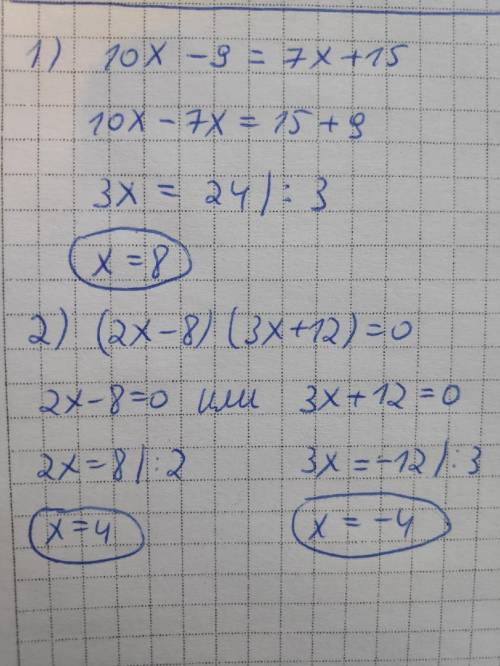 1) 10x - 9 = 7x + 15
10x - 7x = 15 + 9
3x = 24 | : 3
x = 8
2) (2x - 8) (3x + 12) = 0
2x - 8 = 0 или 3x + 12 = 0
2x = 8 | : 2 3x = -12 | : 3
x = 4 x = -4